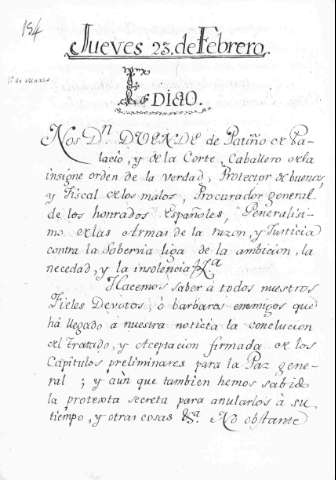 154
Jueves 23. de Febrero.
Edicto.
Nos Dn. DUENDE de Patiño de Pa-
lacio, y de la Corte, Caballero de la
insigne orden de la verdad, Protector de buenos
y Fiscal de los malos, Procurador general
de los honrados Españoles, Generalisi-
mo de las Armas de la razon, y Justicia
contra la Sobervia liga de la ambicion, la
necedad, y la insolencia &a
Hacemos saber a todos nuestros
Fieles Devotos, ò barbaros enemigos que
há llegado à nuestra noticia la conclucion
del Tratado, y aceptacion firmada de los
Capitulos preliminares para la Paz gene-
ral; y aùn que tambien hemos sabido
la protexta secreta para anularlos à su
tiempo, y otras cosas &a. No obstante